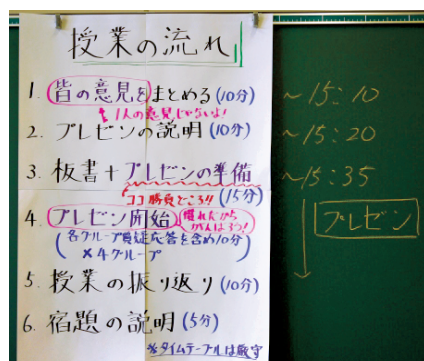 授業の流れ
1. 皆の意見をまとめる(10分)
↑1人の意見じゃないよ!
2. プレゼンの説明(10分)
3. 板書+プレゼンの準備
ココ勝負どころ!!(15分)
4. プレゼン開始 慣れだからがんばろう!
(各グループ質疑応答を含め10分)
×4グループ
5. 授業の振り返り(10分)
6. 宿題の説明(5分)
※タイムテーブルは厳守
~15:10
~15:20
~15:35
プレゼン